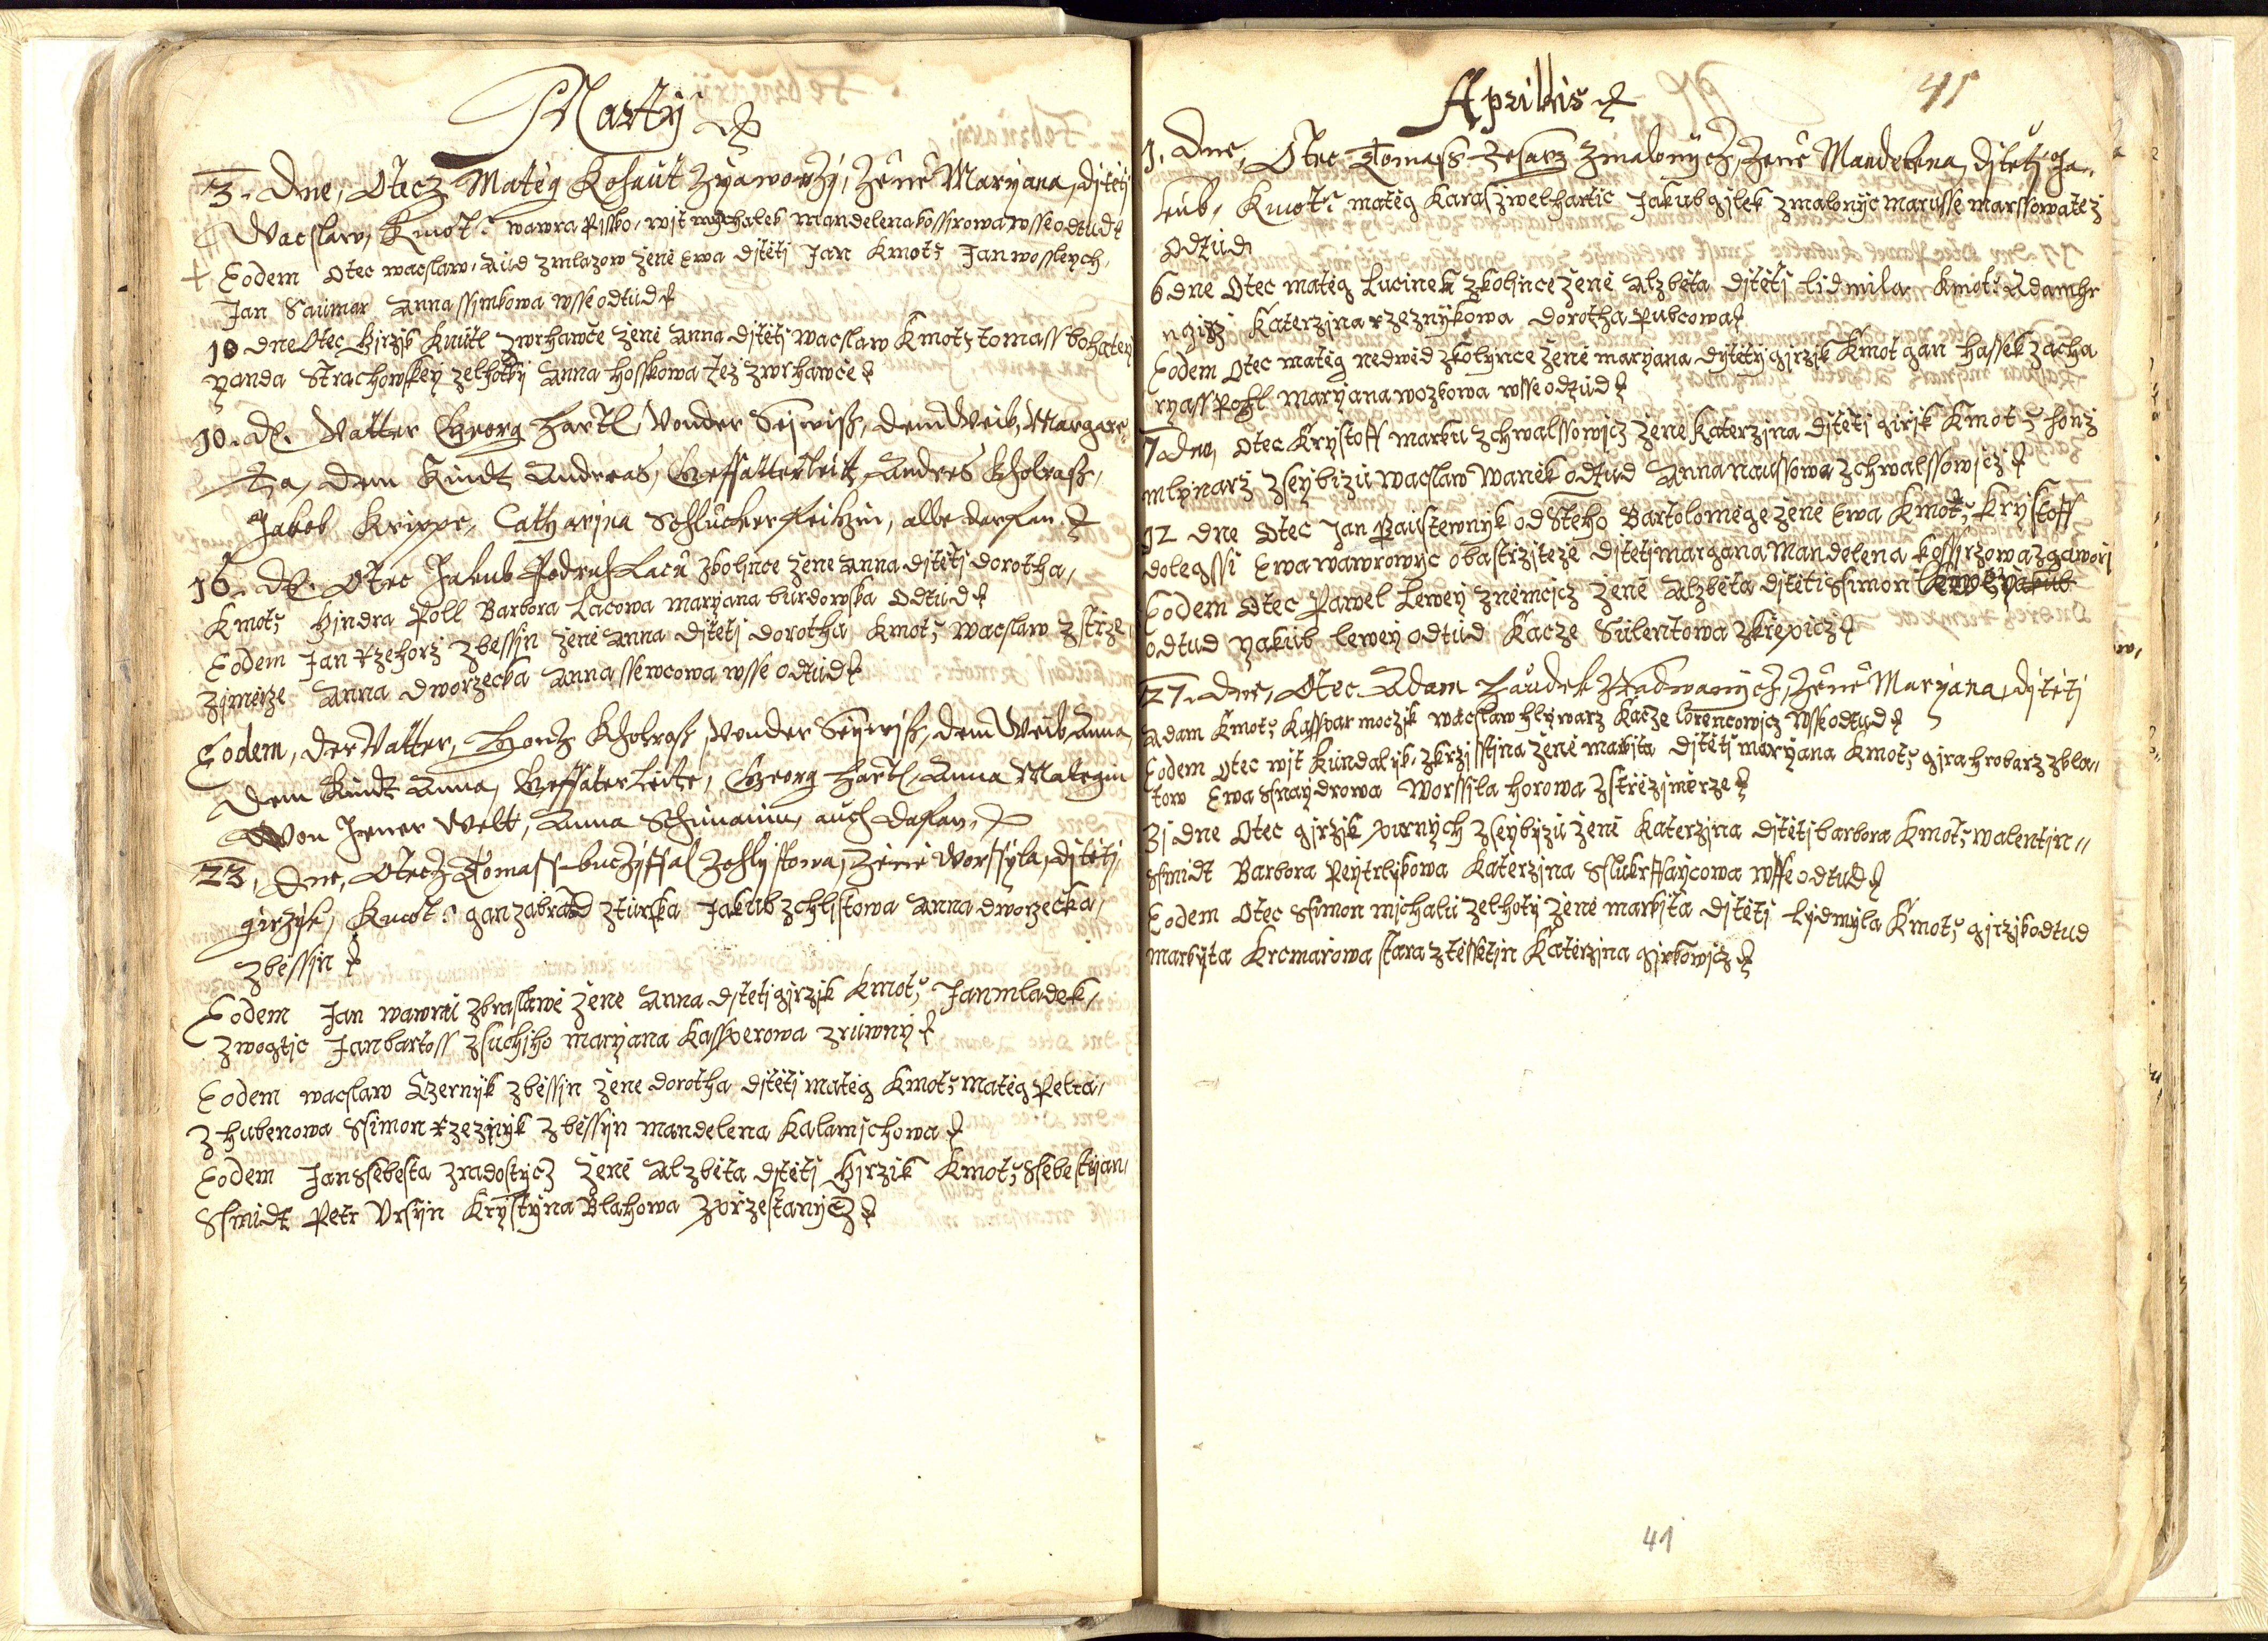 Martÿ
3. Dne, Otecz Matěg Kohaut Zyaworžy, Ženě Maryana, djtětj
Wacslaw, Kmotř: wawra Pissko, wjt mychalek mandelena kossirowa wsse odtud
Eodem Otec wacslaw, Aud zmlazow ženě Ewa djtětj Jan Kmotř Jan wossleych,
Jan Saumar Anna ssimkowa wsse odtud
10 dne Otec Girzjk Knutl zwrhawče ženě Anna djtětj wacslaw Kmotř tomass bohatey
yanda Strachowskey zelhotky Anna hosskowa též zwrhawče
10. d. Vatter Georg Hartl, vonder Sejwiß, dem Weib, Margare,
ta, dem Kindt Andreas, Gefatterleit, Andres Kholraß,
Jakob Krippe, Catharina, alle
16. d. Otec Jakub Lacu zkolince ženě Anna djtětj dorotha,
Kmotř Hjndra Poll Barbora Lacowa maryana burdowska odtud
Eodem Jan Rzehorž zbessin ženě Anna djtětj dorotha Kmotř wacslaw zstrže,
zjměrze Anna dworzecka Anna ssewcowa wsse odtud
Eodem, der Vatter, Hanß Kholraß, vonder Seywiß, dem Weib Anna,
dem Kindt Anna, Gefatterleite, Georg Hartl, Anna
Von Jener Welt, Anna, auch
23, Dne, Otecz Tomass, ženě Worssyla, djtětj
girzjk, Kmotř: gan zabrad zturska Jakub zchlistowa Anna dworzečka,
zbessin
Eodem Jan wawrů zbraslawě ženě Anna djtětj girzjk Kmotř Jan mladek,
zwogtic Jan bartoss zsuchjho maryana Kasperowa zruwny
Eodem wacslaw Czernyk zbessin ženě dorotha djtětj matěg Kmotř matěg Petra,
zhubenowa Ssimon Rzezjnyk zbessyn mandelena Kalamjchowa
Eodem Jan Ssebesta zradostycz ženě Alzběta djtětj Girzik Kmotř Ssebestyan,
Ssmidt Petr Ursyn Krystyna Blahowa zprzestanycz
Aprillis
41
1. Dne, Otec Tomass Zesarz zmalonycz, Ženě Mandelena, djtětj Ja,
kub, Kmotř: matěg Karas zwelhartic Jakub gjlek zmalonyc marusse marssowa též
odtud
6 dne Otec matěg Lucinek zkolince ženě Alzběta djtětj lidmila Kmotř: Adam hr
ngirz Katerzjna rzeznykowa dorotha Pubcowa
Eodem Otec matěg nedwěd zkolynce ženě maryana dytěty girzjk Kmotř gan hassek zacha
ryass Pohl maryana wozkowa wsse odtud
7 Dne, Otec Krystoff marku zchwalssowjcz ženě Katerzjna djtětj girjk Kmotř honz
mlynarž zseybizu wacslaw waněk odtud Anna naussowa zchwalssowjcz
12 dne Otec Jan Paustewnyk od Steho Bartoloměge ženě Ewa Kmotř Krystoff
dolegssi Ewa wawrowyc oba střitěže djtětj margana Mandelena kossirzowa zgaworj
Eodem Otec Pawel Lewey zněmcicz ženě Alzběta djtětj Ssimon
odtud yakub lewey odtud Kacze Sulentowa zkřepicz
27. dne, Otec Adam Haudek zradwanycz, ženě Maryana, djtětj
Adam Kmotř Kasspar moczjk wacslaw hlywarz Kacze lorencowicz wsse odtud
Eodem Otec wjt Kundalyk, zkrzisstina ženě markita djtětj maryana Kmotř gjra hrobarz zbla,
tow Ewa snaydrowa Worssila horowa zstřezjměrze
31 dne Otec girzyk purnych zseybyzu ženě Katerzyna djtětj barbora Kmotř walentin
Ssmidt Barbora Peytrlykowa Katerzina wsse odtud
Eodem Otec Ssimon michalu zelhoty ženě markjta djtětj lydmyla Kmotř girzjk odtud
markyta Krcmarowa stara ztěssetin Katerzina girkowicz
41